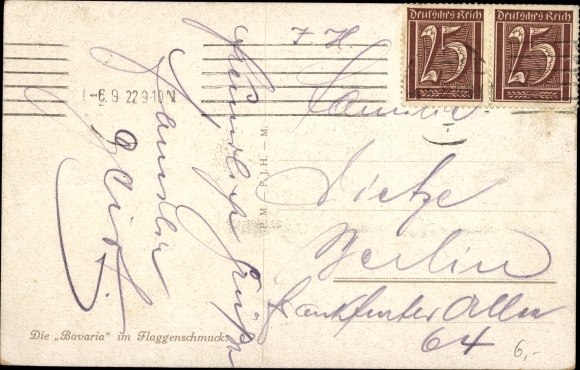 Deutsches Reich
25
Deutsches Reich
25
-6.9 22 9-10 N
F H
Familie
Dietze
Berlin
Frankfurter Allee
64
Herzliche Grüße
Familie
P. M. - P. J. H. - M.
Die „Bavaria" im Flaggenschmuck.
6,-